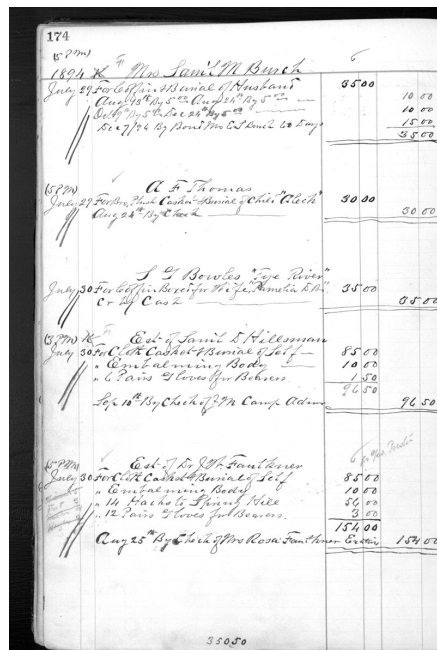 174
(5 PM)
1894 Mrs Sam'l M Burch
July 29 For Coffin & Burial of Husband 35 00
Aug 13th By 5 00 Aug 24th By 5 00 10 00
Oct 9th By 5 00 Dec 24th By 5 00 10 00
Dec 7/94 By Bond Mrs E S Burch 60 Days 15 00
35 00
(5 PM) A F Thomas
July 29 For Plush Casket & Burial of Child "Aleck" 30 00
Aug 24th By Check 30 00
S G Bowles "Tye River"
July 30 For Coffin Box &c for Wife, 35 00
Cr By Cash 35 00
(3 PM) Est of Sam'l D Hillsman
July 30 For Cloth Casket & Burial of Self 85 00
" Embalming Body 10 00
" 6 Pairs Gloves for Bearers 1 50
96 50
Sep 10th By Check of J M Camp Admr 96 50
(5 PM) Est of Dr J W Faulkner
July 30 For Cloth Casket & Burial of Self 85 00
" Embalming Body 10 00
" 14 Hacks to Spring Hill 56 00
" 12 Pairs Gloves for Bearers. 3 00
154 00
Aug 25th By Check of Mrs Rosa Faulkner 154 00
35050